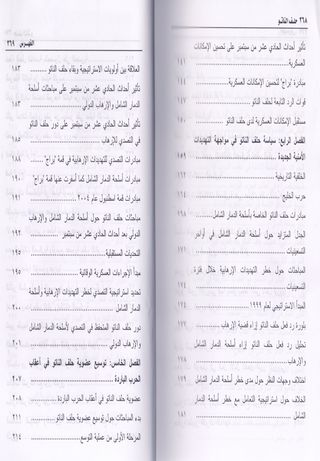 ٢٦٨ حلف الناتو
تأثير أحداث الحادي عشر من سبتمبر على تحسين الإمكانات
العسكرية ١٤١
مبادرة "براج" لتحسين الإمكانات العسكرية
قوات الرد التابعة لحلف الناتو
مستقبل الإمكانات العسكرية لدى حلف الناتو
الفصل الرابع: سياسة حلف الناتو في مواجهة التهديدات
الأمنية الجديدة ١٥٩
الخلفية التاريخية
حرب الخليج ١٦٤
مبادرات حلف الناتو الخاصة بأسلحة الدمار الشامل
الجدل المتزايد حول أسلحة الدمار الشامل في أواخر
التسعينيات ١٧١
المباحثات حول خطر التهديدات الإرهابية خلال فترة
التسعينيات
المبدأ الاستراتيجي لعام ١٩٩٩
بلورة رد فعل حلف الناتو إزاء قضية الإرهاب
تحليل رد فعل حلف الناتو إزاء أسلحة الدمار الشامل
والإرهاب ١٧٨
اختلاف وجهات النظر حول مدى خطر أسلحة الدمار الشامل
الخلاف حول استراتيجية التعامل مع خطر أسلحة الدمار
الشامل ١٨١
الفهرس ٢٦٩
العلاقة بين أولويات الاستراتيجية وبقاء حلف الناتو ١٨٣
تأثير أحداث الحادي عشر من سبتمبر على مباحثات أسلحة
الدمار الشامل والإرهاب الدولي ١٨٣
تأثير أحداث الحادي عشر من سبتمبر على دور حلف الناتو
في التصدي للإرهاب ١٨٥
مبادرات التصدي للتهديدات الإرهابية في قمة "براج" ١٨٨
مبادرات أسلحة الدمار الشامل كما أسفرت عنها قمة "براج" ١٩٠
مبادرات قمة اسطنبول عام ٢٠٠٤ ١٩١
مباحثات حلف الناتو حول أسلحة الدمار الشامل والإرهاب
الدولي بعد أحداث الحادي عشر من سبتمبر ١٩٢
التحديات المستقبلية ١٩٥
مبدأ الإجراءات العسكرية الوقائية ١٩٥
تحديد استراتيجية التصدي للتهديدات الإرهابية وأسلحة
الدمار الشامل ٢٠٠
دور حلف الناتو المتحفظ في التصدي لأسلحة الدمار الشامل
والإرهاب الدولي ٢٠١
الفصل الخامس: توسيع عضوية حلف الناتو في أعقاب
الحرب الباردة ٢٠٧
توسيع عضوية حلف الناتو في أعقاب الحرب الباردة ٢٠٨
بدء المباحثات حول توسيع عضوية حلف الناتو ٢١١
المرحلة الأولي من عملية التوسع ٢١٤